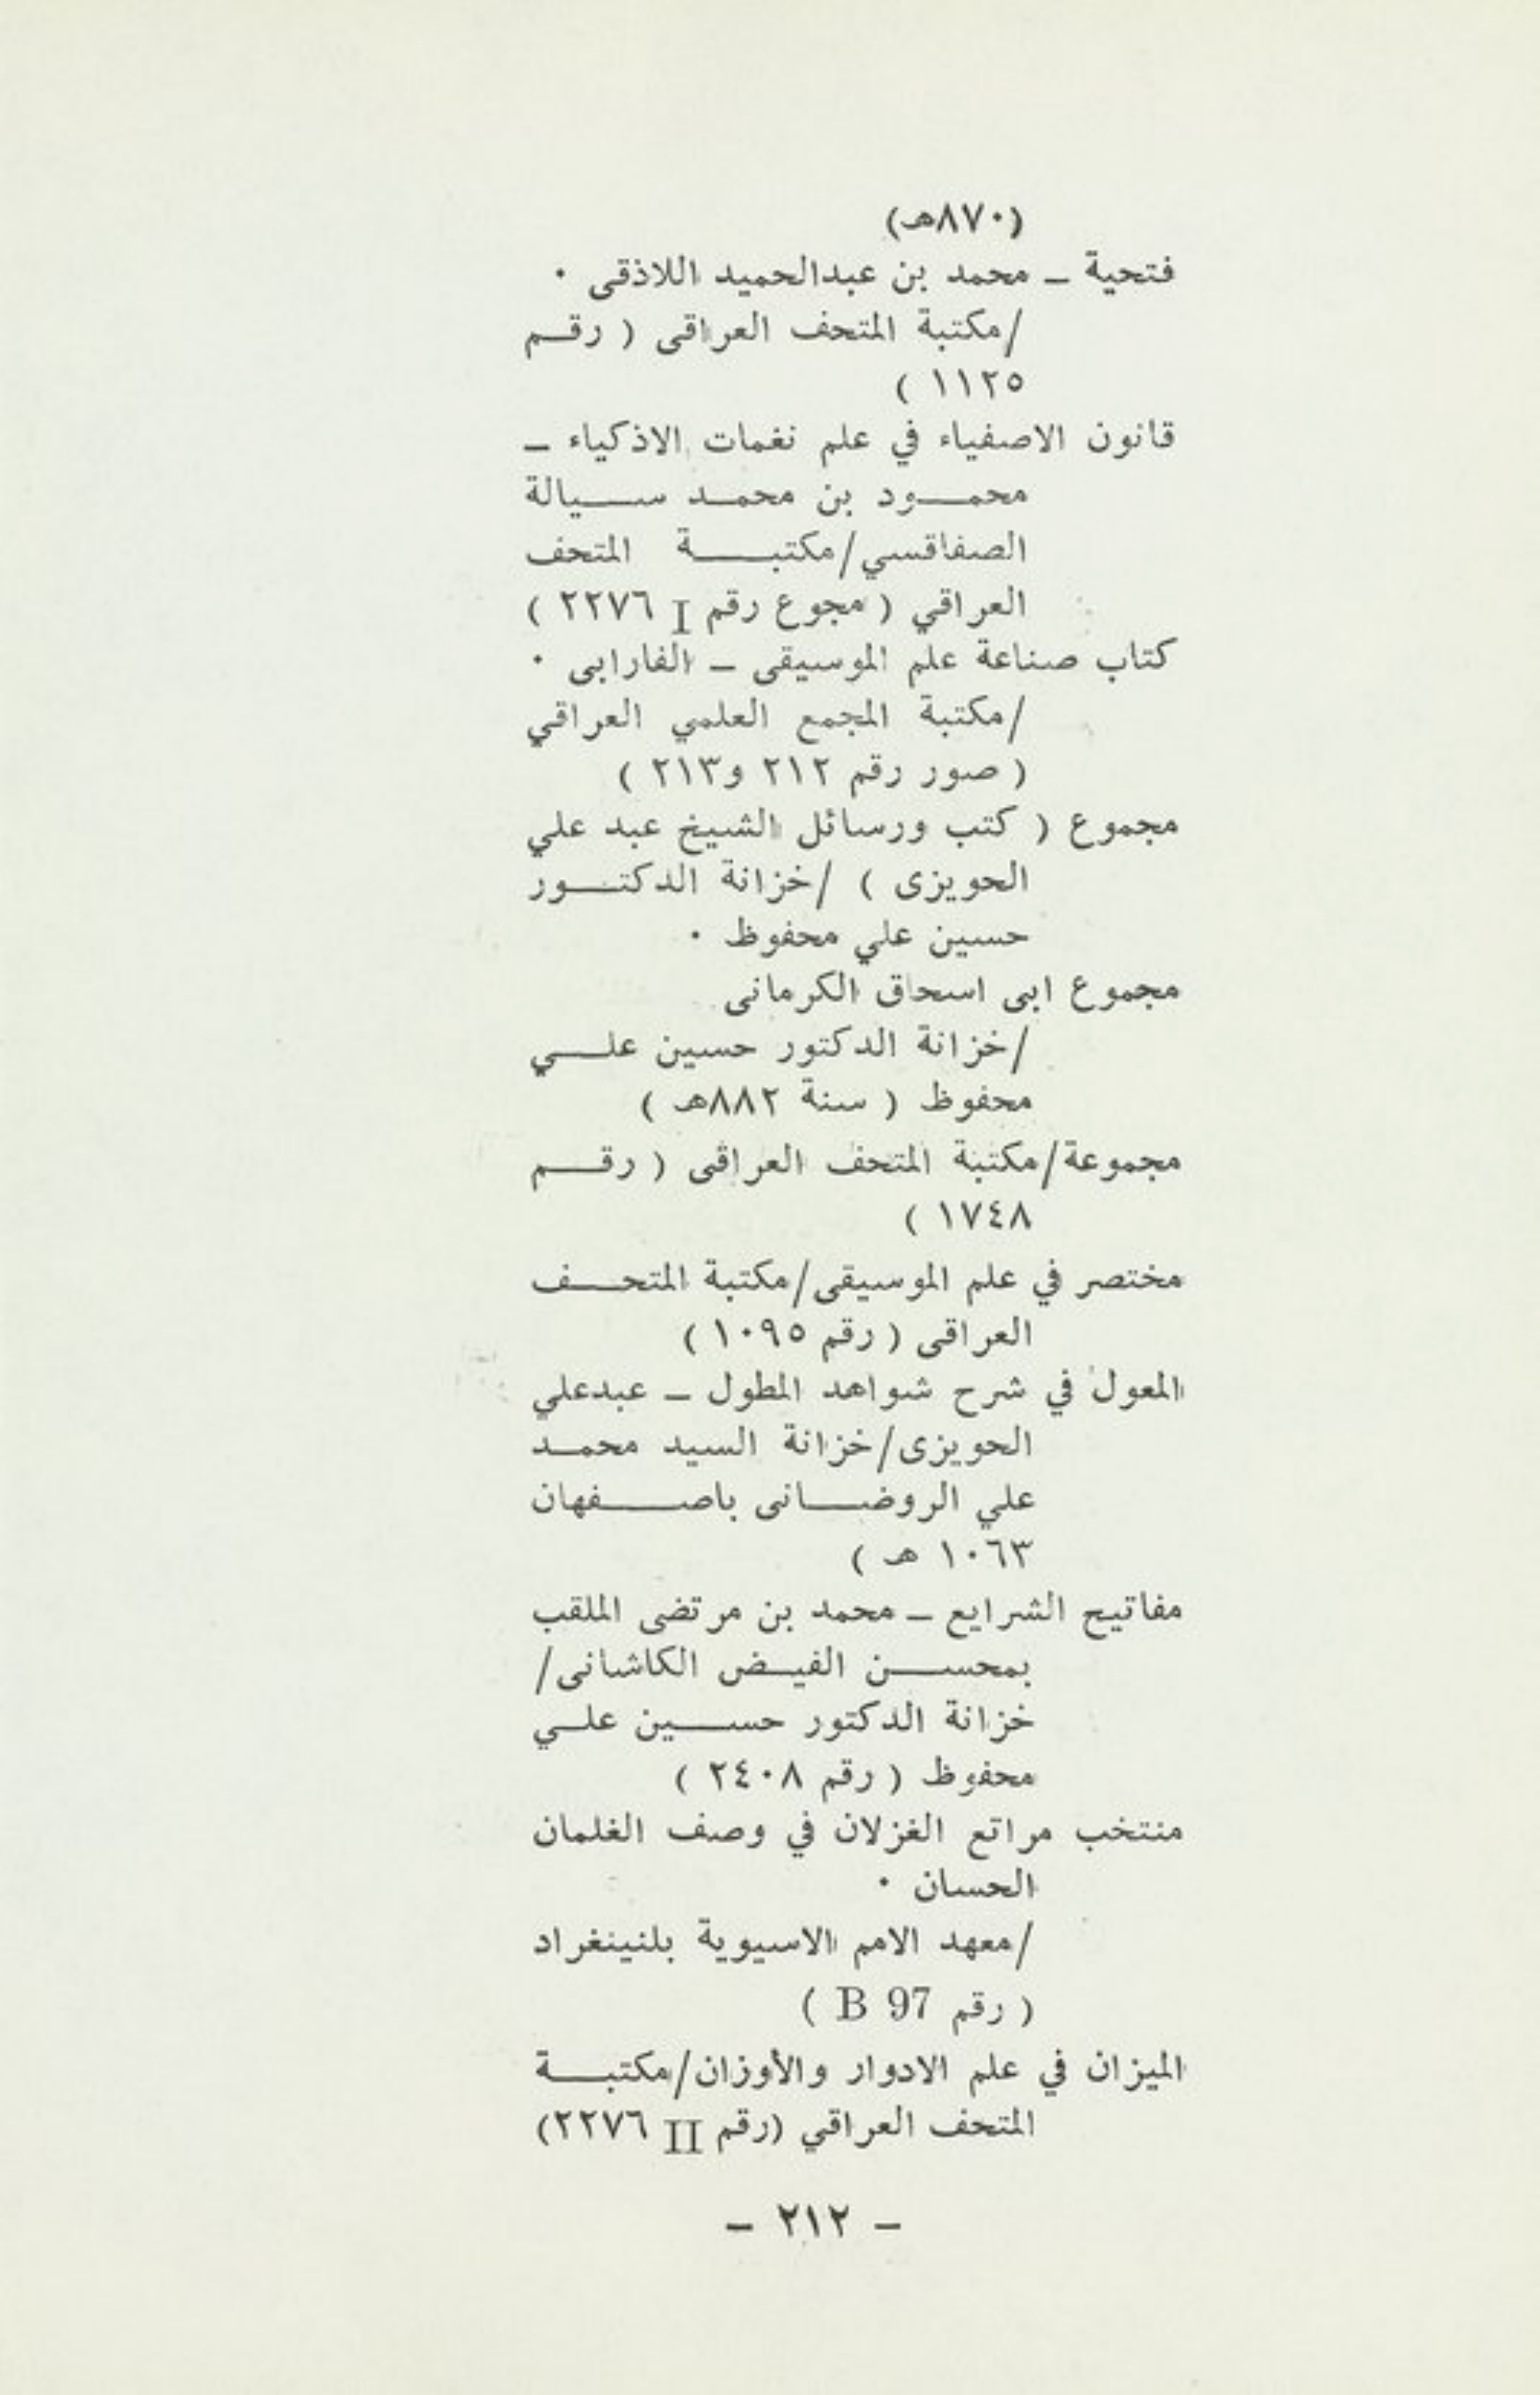 (٨٧٠هـ)
فتحية ـ محمد بن عبدالحميد اللاذقى ٠
/مكتبة المتحف العراقى ( رقـم
١١٢٥ )
قانون الاصفياء في علم نغمات الاذكياء ـ
محمـــود بن محمـد ســـيالة
الصفاقسي/مكتبـــــة المتحف
العراقي ( مجوع رقم I ٢٢٧٦ )
كتاب صناعة علم الموسيقى ـ الفارابى ٠
/مكتبة المجمع العلمي العراقي
( صور رقم ٢١٢ و٢١٣ )
مجموع ( كتب ورسائل الشيخ عبد علي
الحويزى ) /خزانة الدكتـــور
حسين علي محفوظ ٠
مجموع ابى اسحاق الكرمانى
/خزانة الدكتور حسين علـــي
محفوظ ( سنة ٨٨٢هـ )
مجموعة/مكتبة المتحف العراقى ( رقـــم
١٧٤٨ )
مختصر في علم الموسيقى/مكتبة المتحـــف
العراقى ( رقم ١٠٩٥ )
المعول في شرح شواهد المطول ـ عبدعلي
الحويزى/خزانة السيد محمـد
علي الروضـــانى باصـــــفهان
١٠٦٣ هـ )
مفاتيح الشرايع ـ محمد بن مرتضى الملقب
بمحســـن الفيـض الكاشانى/
خزانة الدكتور حســـين علـي
محفوظ ( رقم ٢٤٠٨ )
منتخب مراتع الغزلان في وصف الغلمان
الحسان ٠
/معهد الامم الاسيوية بلنينغراد
( رقم B 97 )
الميزان في علم الادوار والأوزان/مكتبـــة
المتحف العراقي (رقم II ٢٢٧٦)
ـ ٢١٢ ـ